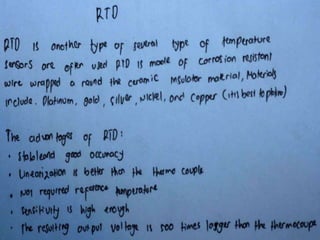 RTD
RTD is another type of several type of temperature
sensors are often used RTD is made of corrosion resistant
wire wrapped a round the ceramic insulator material, Materials
include. Platinum, gold, silver, nickel, and copper (it is best to platin)
The advantages of RTD:
• Stable and good accuracy
• Linearization is better than the thermo couple
• Not required reference temperature
• Sensitivity is high enough
• The resulting output voltage is 500 times larger than the thermocouple